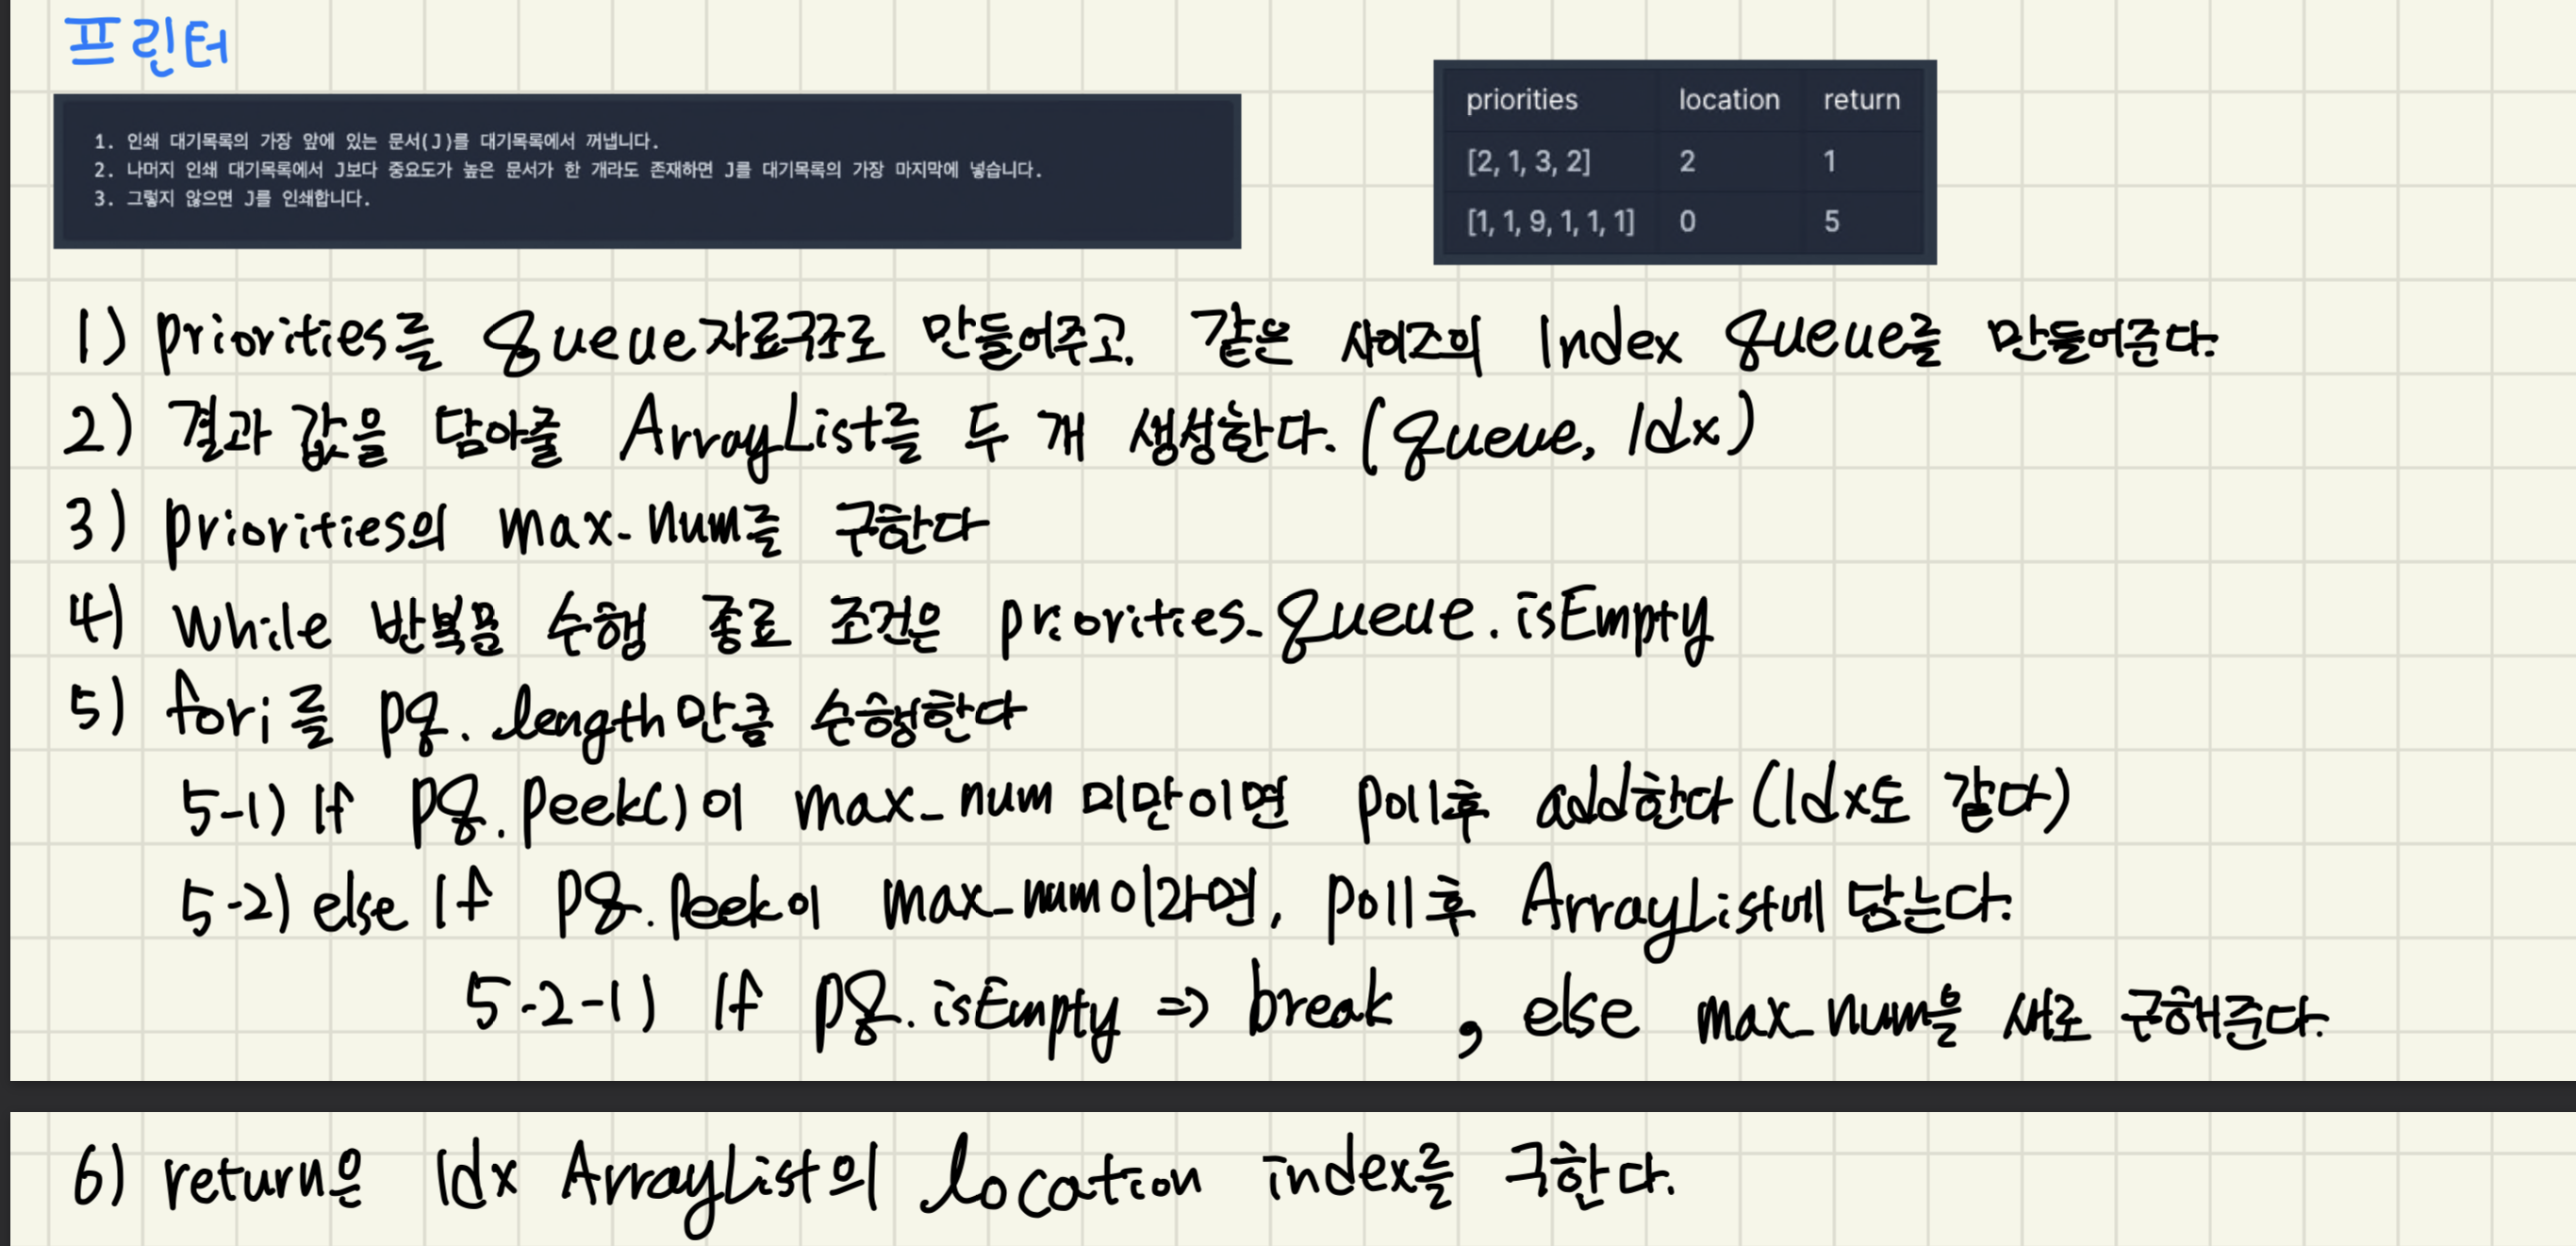 프린터
1. 인쇄 대기목록의 가장 앞에 있는 문서(J)를 대기목록에서 꺼냅니다.
2. 나머지 인쇄 대기목록에서 J보다 중요도가 높은 문서가 한 개라도 존재하면 J를 대기목록의 가장 마지막에 넣습니다.
3. 그렇지 않으면 J를 인쇄합니다.
priorities location return
[2, 1, 3, 2] 2 1
[1, 1, 9, 1, 1, 1] 0 5
1) priorities를 queue자료구조로 만들어주고, 같은 사이즈의 Index queue를 만들어준다.
2) 결과 값을 담아줄 ArrayList를 두 개 생성한다. (queue, Idx)
3) priorities의 max_num를 구한다
4) while 반복문 수행 종료 조건은 priorities_queue.isEmpty
5) fori를 pq.length만큼 수행한다
5-1) If pq.peek()이 max_num 미만이면 poll후 add한다 (Idx도 같다)
5-2) else If pq.peek이 max_num이라면, poll후 ArrayList에 담는다.
5-2-1) If pq.isEmpty => break , else max_num을 새로 구해준다.
6) return은 Idx ArrayList의 location index를 구한다.